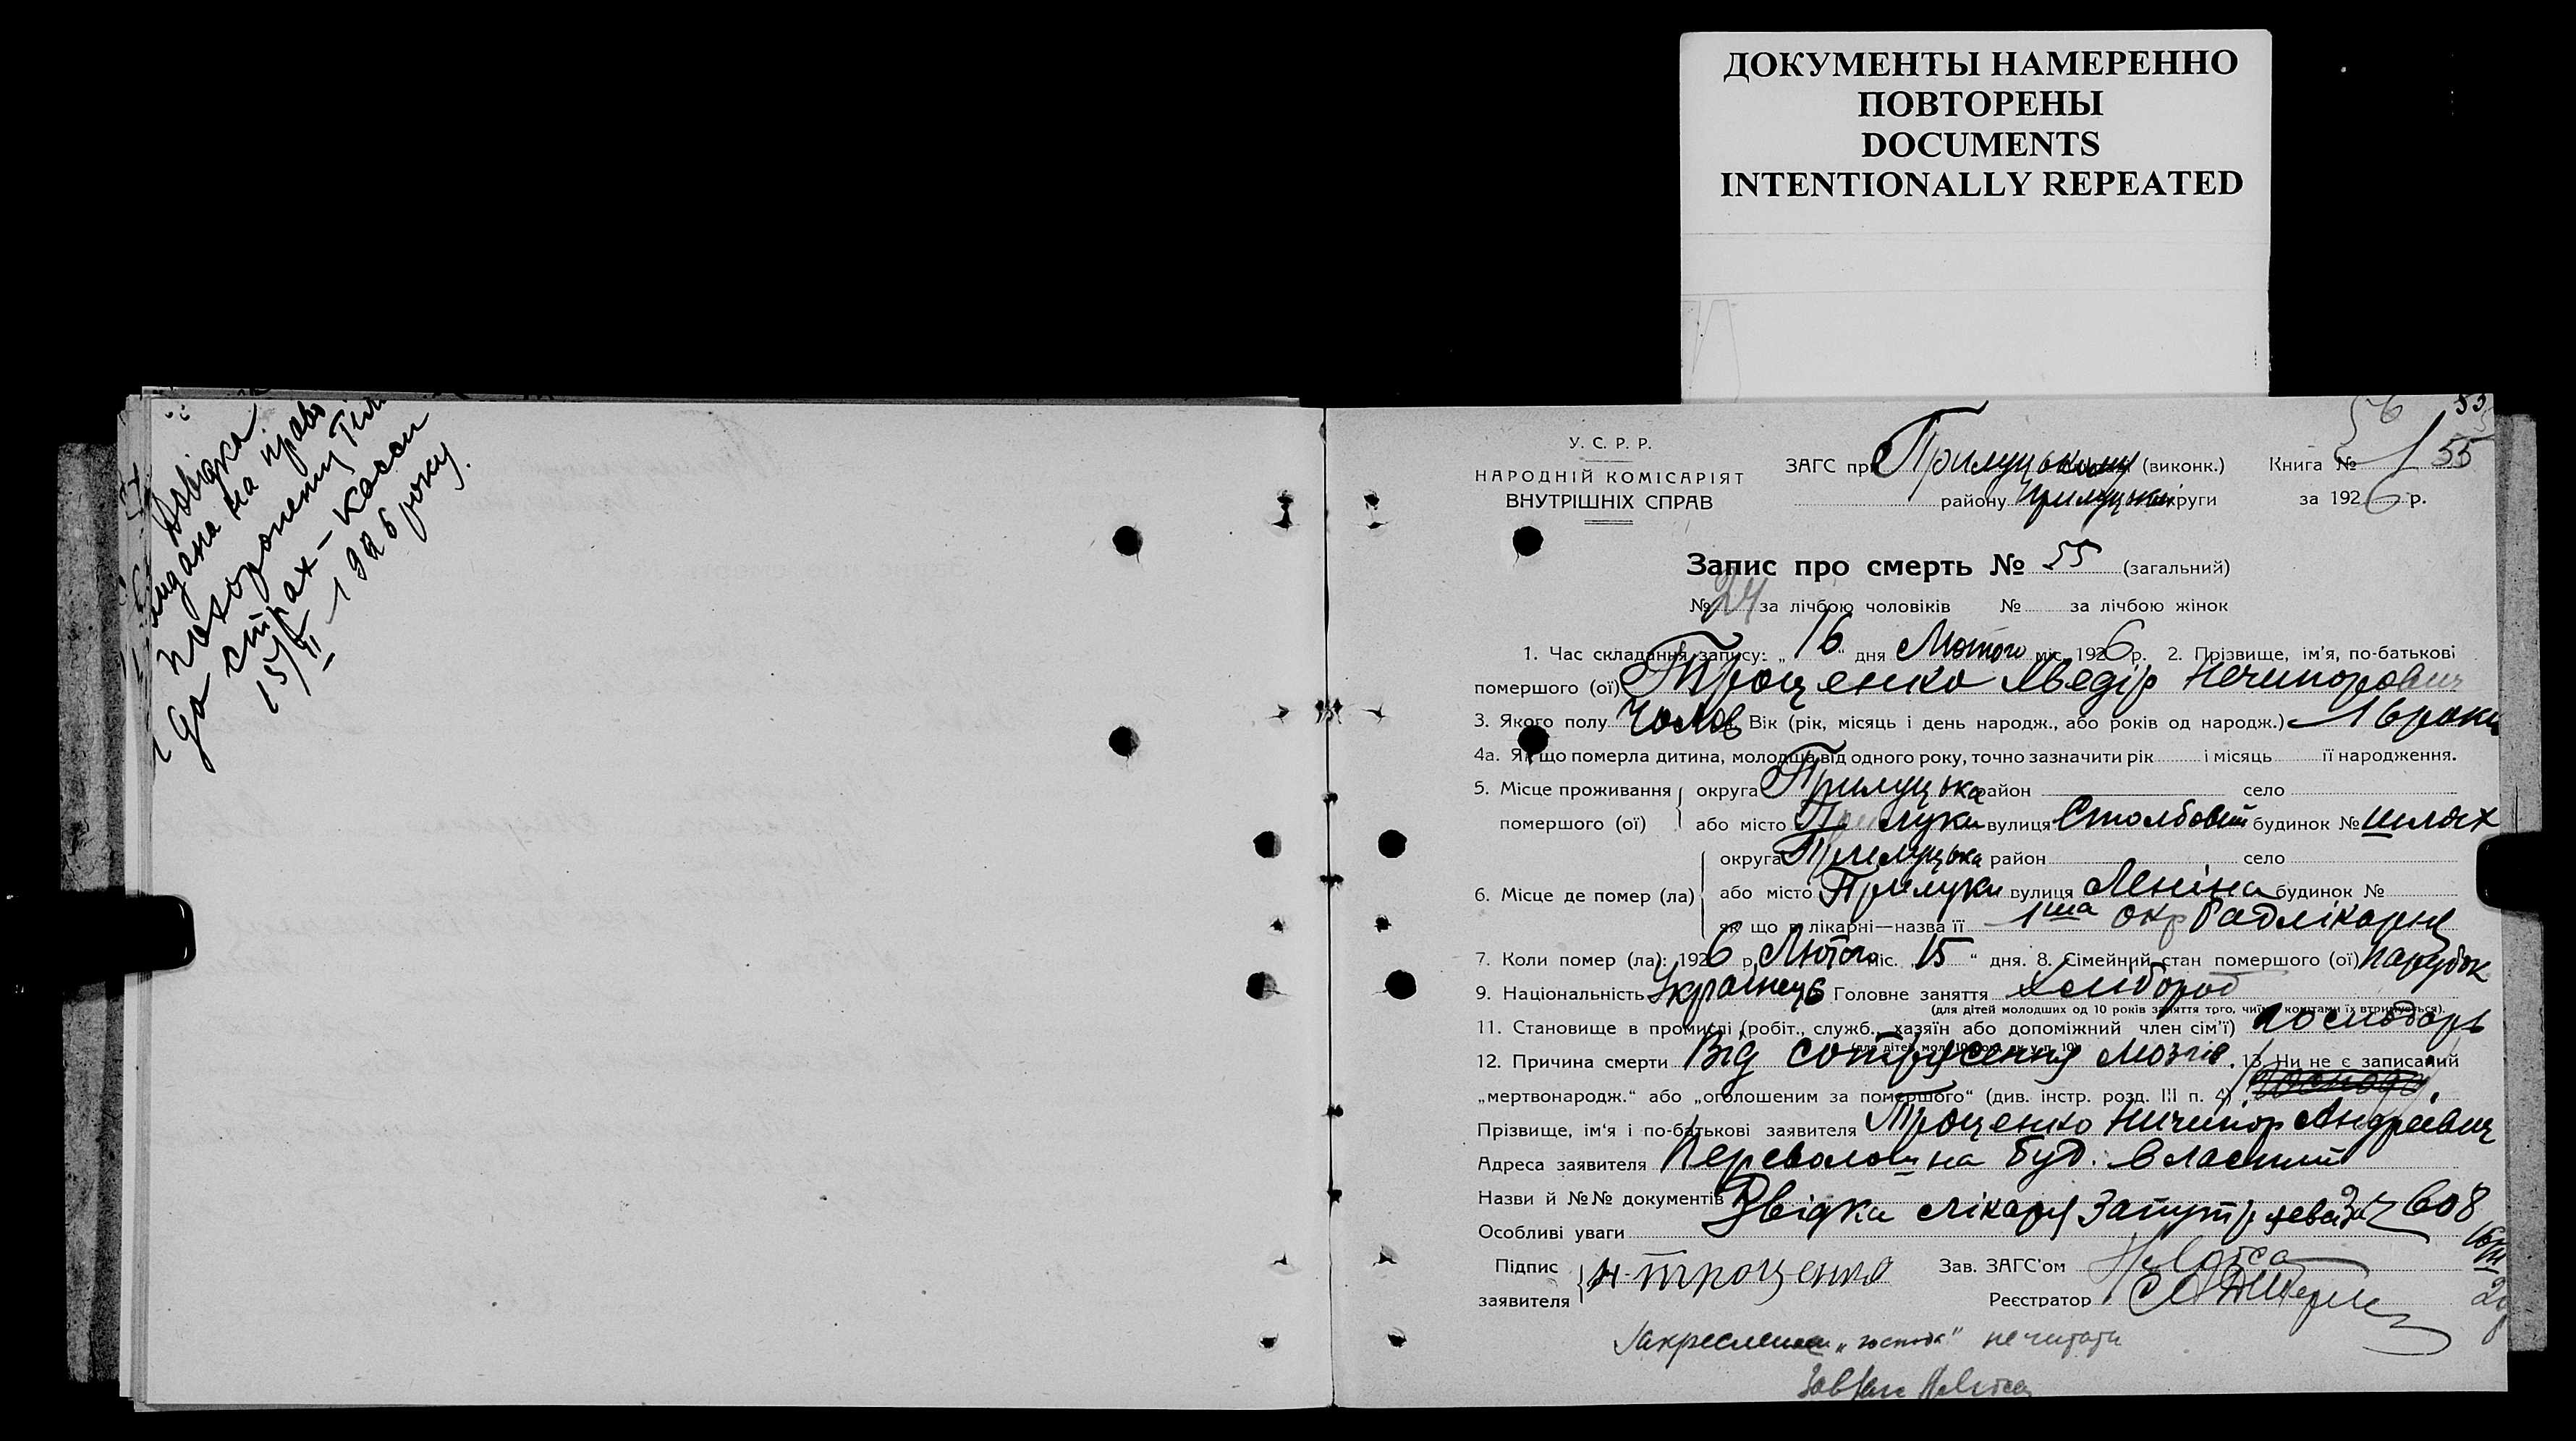 ДОКУМЕНТЫ НАМЕРЕННО
ПОВТОРЕНЫ
DOCUMENTS
INTENTIONALLY REPEATED
Довідка
видана на право
похоронену
до страх-касси
15/II 1926 року.
56
55
У. С. Р. Р.
НАРОДНІЙ КОМІСАРІЯТ
ВНУТРІШНІХ СПРАВ
ЗАГС при Прилуцькому (виконк.) Книга № 1 55
району Прилуцької округи за 1926 р.
Запис про смерть № 55 (загальний)
№ 24 за лічбою чоловіків № за лічбою жінок
1. Час складання запису: „16“ дня Лютого міс. 1926 р. 2. Прізвище, ім'я, по-батькові
помершого (ої) Троценко Хведір Нечипорович
3. Якого полу Чолов Вік (рік, місяць і день народж., або років од народж.) 16 роки
4а. Як що померла дитина, молодша від одного року, точно зазначити рік і місяць її народження.
5. Місце проживання округа Прилуцька район село
помершого (ої) або місто Прилуки вулиця Столбовий будинок № шлях
округа Прилуцька район село
6. Місце де помер (ла) або місто Прилуки вулиця Леніна будинок №
як що в лікарні—назва її 1ша окр Радлікарня
7. Коли помер (ла): 1926 р. Лютого міс. 15 “ дня. 8. Сімейний стан помершого (ої) парубок
9. Національність Українець Головне заняття Хлібороб
(для дітей молодших од 10 років заняття того, чиїм коштами їх втримується).
11. Становище в промислі (робіт., служб., хазяїн або допоміжний член сім'ї) господарь
12. Причина смерти Від сотрясення мозгів. 13. Чи не є записаний
„мертвонародж.“ або „оголошеним за помершого“ (див. інстр. розд. III п. 4)
Прізвище, ім'я і по-батькові заявителя Троценко Ничипор Андрієвич
Адреса заявителя Переволошна буд. власний
Назви й №№ документів
Особливі уваги Звідка лікаря за 608
Підпис
заявителя Н-троценко
Зав. ЗАГС'ом
Реєстратор
Закреслене „господа" не читати